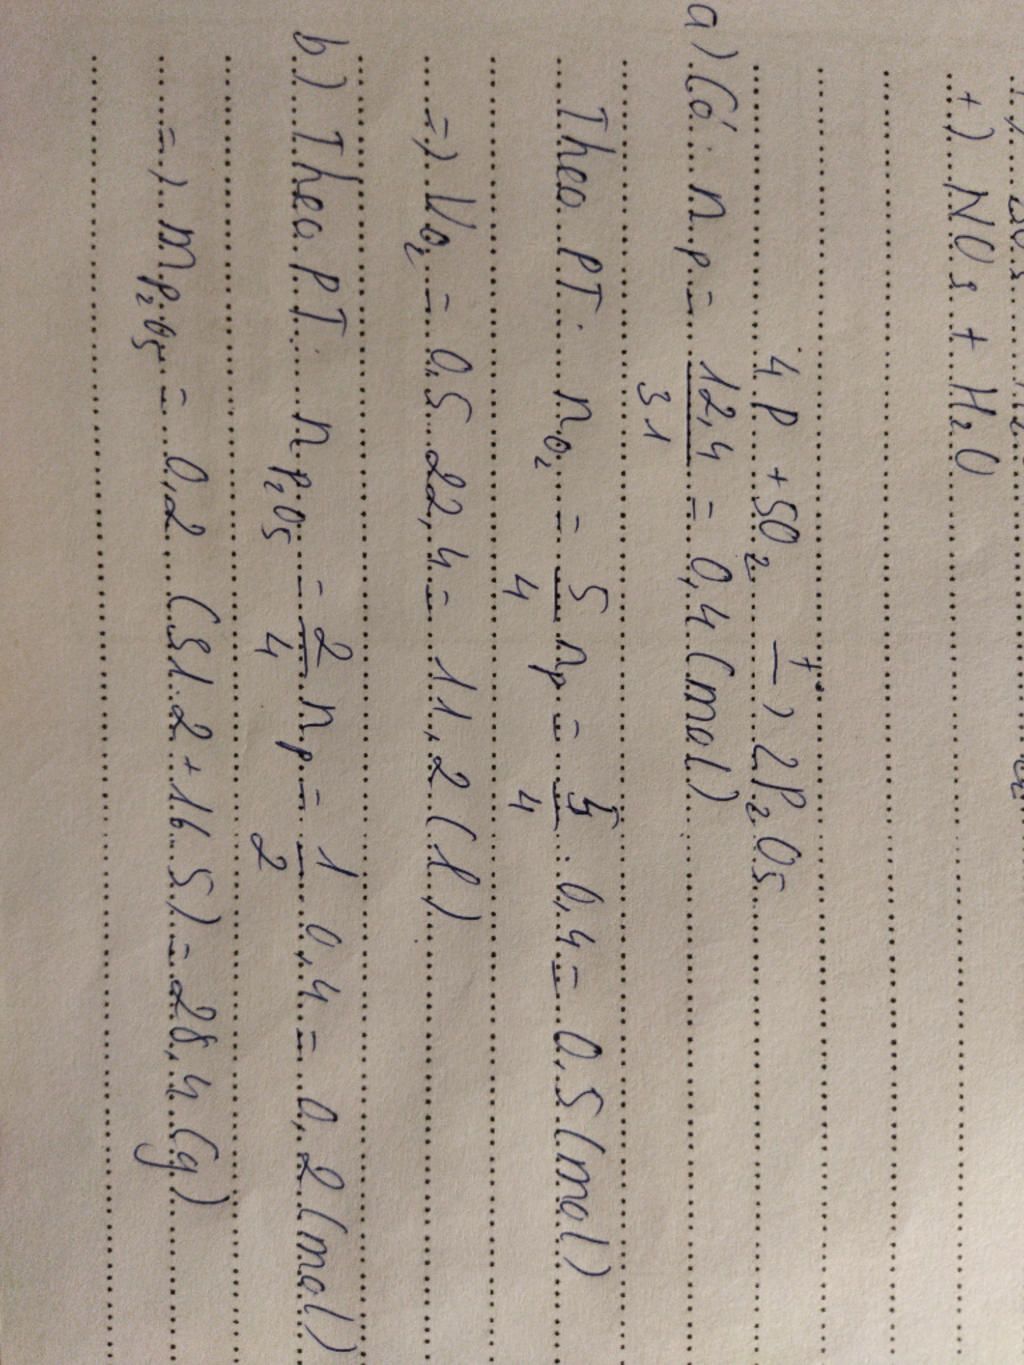 +) NO3 + H2O
4P + 5O2 t°→ 2P2O5
a) Có: nP = 12,4/31 = 0,4 (mol)
Theo PT: nO2 = 5/4 nP = 5/4 . 0,4 = 0,5 (mol)
=> VO2 = 0,5 . 22,4 = 11,2 (l)
b) Theo PT: nP2O5 = 2/4 nP = 1/2 . 0,4 = 0,2 (mol)
=> mP2O5 = 0,2 . (31.2 + 16.5) = 28,4 (g)